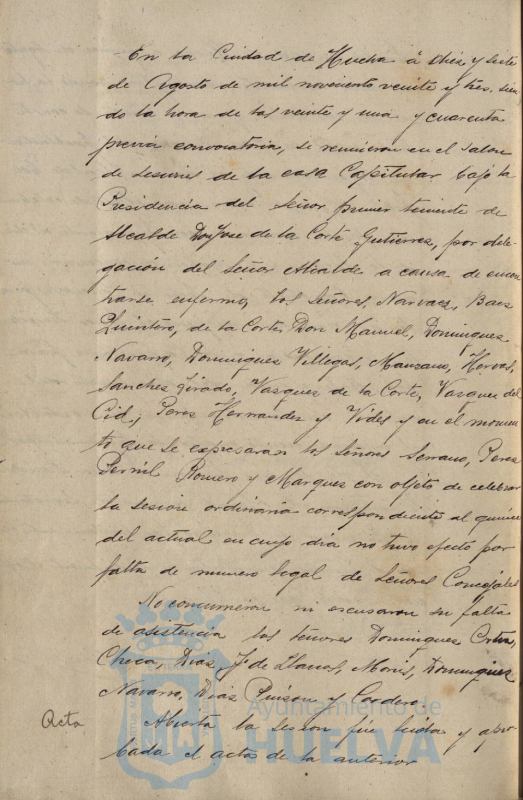 En la Ciudad de Huelva á diez y siete
de Agosto de mil novecientos veinte y tres, sien
do la hora de las veinte y una y cuarenta
previa convocatoria, se reunieron en el Salon
de Sesiones de la casa Capitular bajo la
Presidencia del Señor primer teniente de
Alcalde Don Jose de la Corte Gutierrez, por dele
gación del Señor Alcalde a causa de encon
trarse enfermo, los Señores, Narvaez, Baez
Quintero, de la Corte Don Manuel, Dominguez
Navarro, Dominguez Villegas, Manzano, Hervas,
Sanchez Tirado, Vazquez de la Corte, Vazquez del
Cid, Perez Hernandez y Vides y en el momen
to que se expresarán los Señores Serrano, Perez
Pernil Romero y Marquez con objeto de celebrar
la sesion ordinaria correspondiente al quince
del actual en cuyo dia no tuvo efecto por
falta de numero legal de Señores Concejales
No concurrieron ni escusaron su falta
de asistencia los Señores Dominguez
Checa, Diaz, Fº de Llanos, Dominguez
Navarro, Diaz Pinzon y Cordero
Acta
Abierta la sesion fué leida y apro
bada el acta de la anterior
Ayuntamiento de
HUELVA